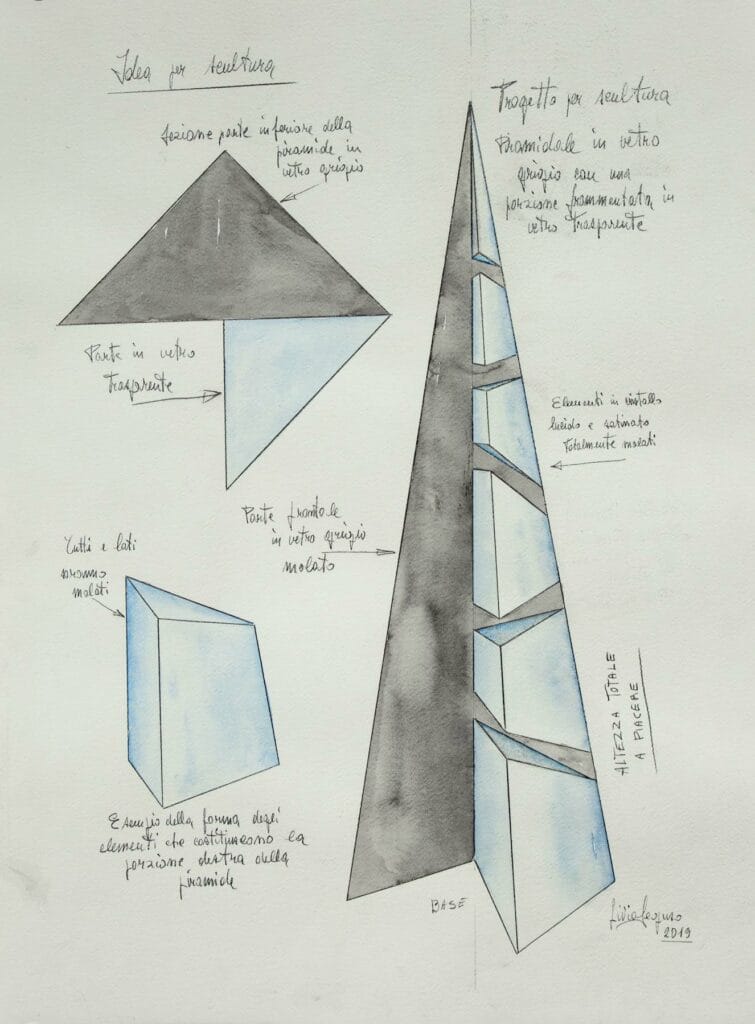 Idea per scultura
Sezione parte inferiore della
piramide in
vetro grigio
Progetto per scultura
Piramidale in vetro
grigio con una
porzione frammentata in
vetro trasparente
Parte in vetro
trasparente
Elementi in cristallo
lucido e satinato
totalmente molati
Parte frontale
in vetro grigio
molato
Tutti e lati
saranno
molati
ALTEZZA TOTALE
A PIACERE
Esempio della forma degli
elementi che costituiscono la
porzione destra della
piramide
BASE
Livio Seguso
2019